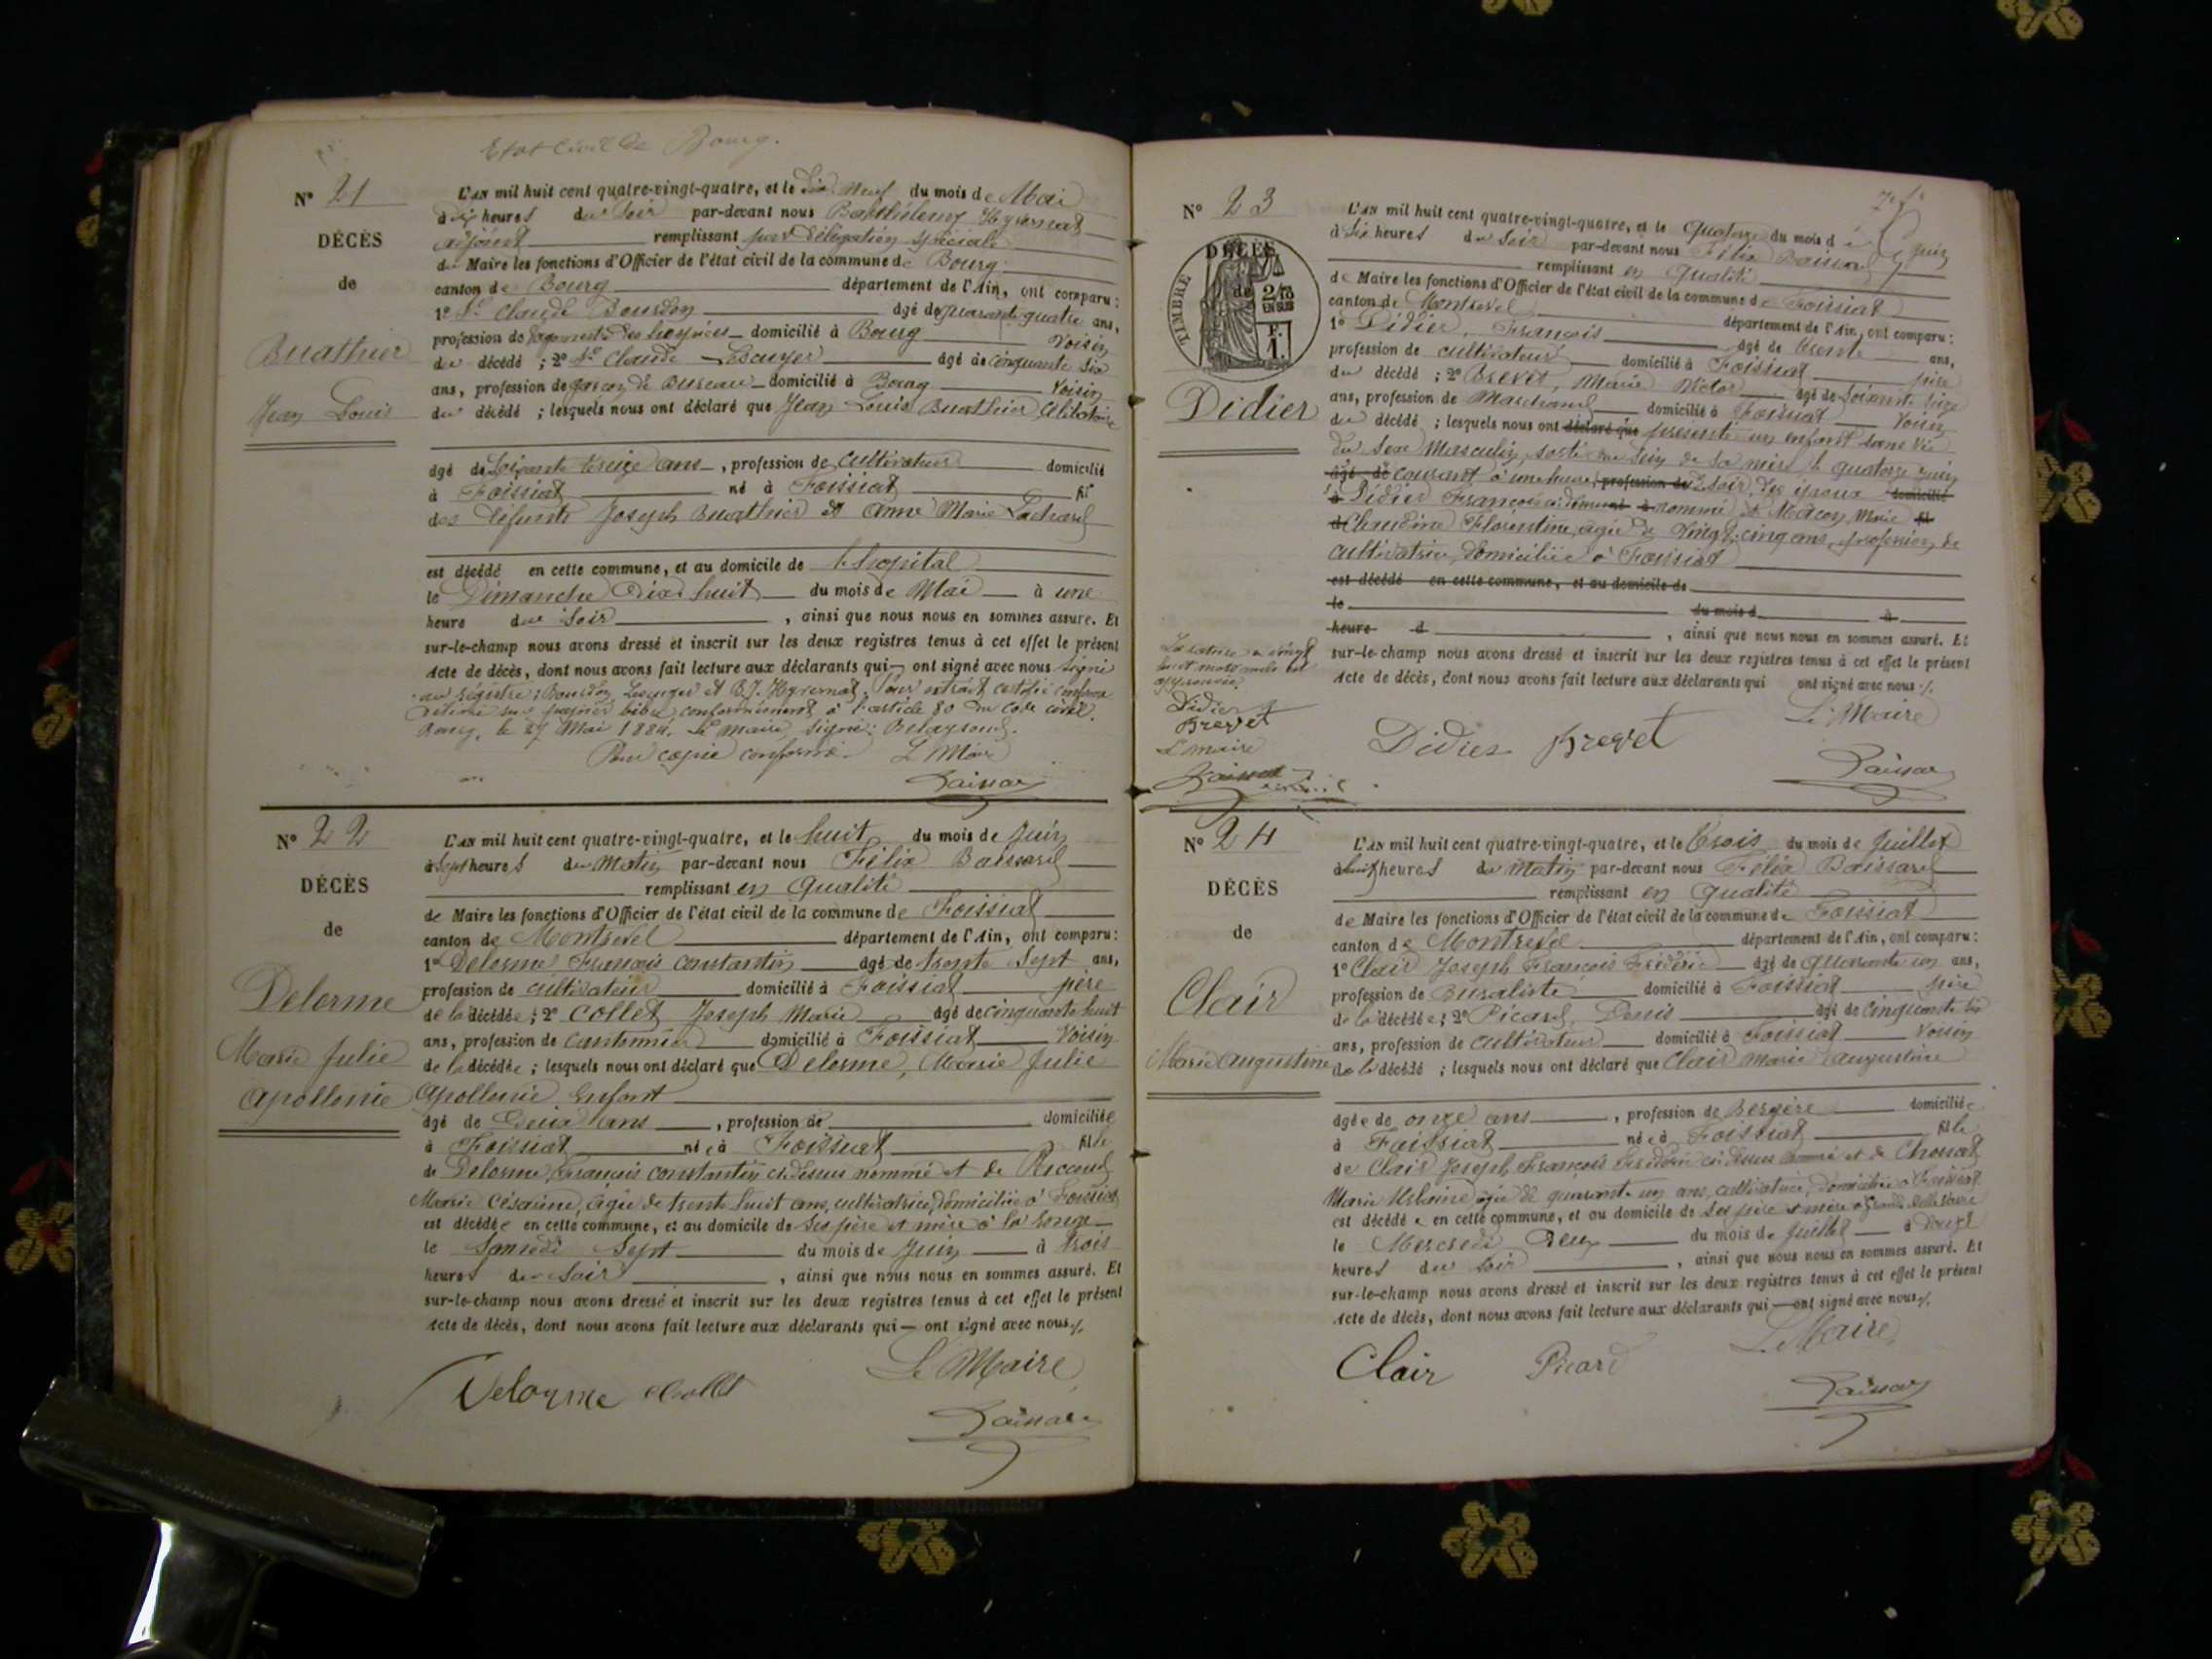 Etat Civil de Bourg.
N° 21
DÉCÈS
de
Buathier
Jean Louis
L'AN mil huit cent quatre-vingt-quatre, et le dix neuf du mois de Mai
à heures du soir par-devant nous Barthélemy Hyvernat
adjoint remplissant par délégation spéciale
du Maire les fonctions d'Officier de l'état civil de la commune de Bourg
canton de Bourg département de l'Ain, ont comparu :
1° Sr Claude Bourdon âgé de quarante quatre ans,
profession de des hospices domicilié à Bourg Voisin
du décédé ; 2° Sr Claude Lécuyer âgé de cinquante six
ans, profession de garçon de Bureau domicilié à Bourg Voisin
du décédé ; lesquels nous ont déclaré que Jean Louis Buathier célibataire
âgé de soixante treize ans, profession de cultivateur domicilié
à Foissiat né à Foissiat fils
des défunts Joseph Buathier et Anne Marie Pochard
est décédé en cette commune, et au domicile de l'hopital
le Dimanche Dix huit du mois de Mai à une
heure du soir, ainsi que nous nous en sommes assuré. Et
sur-le-champ nous avons dressé et inscrit sur les deux registres tenus à cet effet le présent
Acte de décès, dont nous avons fait lecture aux déclarants qui ont signé avec nous signé
au registre : Bourdon, Lécuyer et B.J. Hyvernat. Pour extrait certifié conforme
délivré sur papier libre, conformément à l'article 80 du Code civil.
Bourg, le 27 Mai 1884. Le maire, signé :
Pour copie conforme. Le Maire
N° 22
DÉCÈS
de
Delorme
Marie Julie
Apollonie
L'AN mil huit cent quatre-vingt-quatre, et le huit du mois de Juin
à sept heures du matin par-devant nous Félix Baissard
remplissant en qualité
de Maire les fonctions d'Officier de l'état civil de la commune de Foissiat
canton de Montrevel département de l'Ain, ont comparu :
1° Delorme François Constantin âgé de trente sept ans,
profession de cultivateur domicilié à Foissiat père
de la décédée ; 2° Collet Joseph Marie âgé de cinquante huit
ans, profession de cantonnier domicilié à Foissiat Voisin
de la décédée ; lesquels nous ont déclaré que Delorme, Marie Julie
Apollonie Enfant
âgé de Deux ans, profession de domiciliée
à Foissiat née à Foissiat fille
de Delorme François Constantin ci-dessus nommé et de Picaud
Marie Césarine, âgée de trente huit ans, cultivatrice, domiciliée à Foissiat
est décédée en cette commune, et au domicile de ses père et mère à la
le Samedi Sept du mois de Juin à trois
heures du soir, ainsi que nous nous en sommes assuré. Et
sur-le-champ nous avons dressé et inscrit sur les deux registres tenus à cet effet le présent
Acte de décès, dont nous avons fait lecture aux déclarants qui — ont signé avec nous ./.
Delorme Collet Le Maire
Baissard
N° 23
DÉCÈS
de
TIMBRE
Didier
L'AN mil huit cent quatre-vingt-quatre, et le quatorze du mois de juin
à six heures du soir par-devant nous Félix Baissard
remplissant en qualité
de Maire les fonctions d'Officier de l'état civil de la commune de Foissiat
canton de Montrevel département de l'Ain, ont comparu :
1° Didier, François âgé de trente ans,
profession de cultivateur domicilié à Foissiat père
du décédé ; 2° Brevet, Marie Victor âgé de soixante seize
ans, profession de Marchand domicilié à Foissiat Voisin
du décédé ; lesquels nous ont déclaré que présenté un enfant sans vie
du sexe Masculin, sorti du sein de sa mère le quatorze juin
âgé de courant à une heure profession de du soir, des époux domicilié
à Didier François ci-dessus né à nommé et Mâcon Marie fil
d Claudine Florentine, âgée de vingt cinq ans, profession de
cultivatrice, domiciliée à Foissiat
est décédé en cette commune, et au domicile de
le du mois d à
heure d, ainsi que nous nous en sommes assuré. Et
sur-le-champ nous avons dressé et inscrit sur les deux registres tenus à cet effet le présent
Acte de décès, dont nous avons fait lecture aux déclarants qui ont signé avec nous ./.
La rature de vingt
huit mots nuls est
approuvée.
Didier
Brevet
Le maire
Baissard
Didier Brevet Le Maire
Baissard
N° 24
DÉCÈS
de
Clair
Marie Augustine
L'AN mil huit cent quatre-vingt-quatre, et le trois du mois de Juillet
à huit heures du matin par-devant nous Félix Baissard
remplissant en qualité
de Maire les fonctions d'Officier de l'état civil de la commune de Foissiat
canton de Montrevel département de l'Ain, ont comparu :
1° Clair Joseph François Frédéric âgé de quarante un ans,
profession de Buraliste domicilié à Foissiat père
de la décédée ; 2° Picard, Denis âgé de cinquante six
ans, profession de cultivateur domicilié à Foissiat Voisin
de la décédé ; lesquels nous ont déclaré que Clair Marie Augustine
âgée de onze ans, profession de Bergère domiciliée
à Foissiat née à Foissiat fille
de Clair Joseph François Frédéric ci-dessus nommé et de Chossat
Marie âgée de quarante un ans, cultivatrice, domiciliée à Foissiat
est décédée en cette commune, et au domicile de ses père et mère
le Mercredi deux du mois de Juillet à
heures du soir, ainsi que nous nous en sommes assuré. Et
sur-le-champ nous avons dressé et inscrit sur les deux registres tenus à cet effet le présent
Acte de décès, dont nous avons fait lecture aux déclarants qui — ont signé avec nous ./.
Clair Picard Le Maire
Baissard